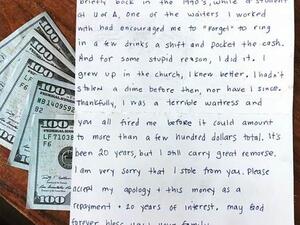 briefly back in the 1990's, while a student
at U of A, one of the waiters I worked
with had encouraged me to "forget" to ring
in a few drinks a shift and pocket the cash.
And for some stupid reason, I did it. I
grew up in the church, I knew better. I hadn't
stolen a dime before then, nor have I since.
Thankfully, I was a terrible waitress and
you all fired me before it could amount
to more than a few hundred dollars total. It's
been 20 years, but I still carry great remorse.
I am very sorry that I stole from you. Please
accept my apology + this money as a
repayment + 20 years of interest. may God
forever bless you + your family.
100
100
F6
100
LF
F6
100
100